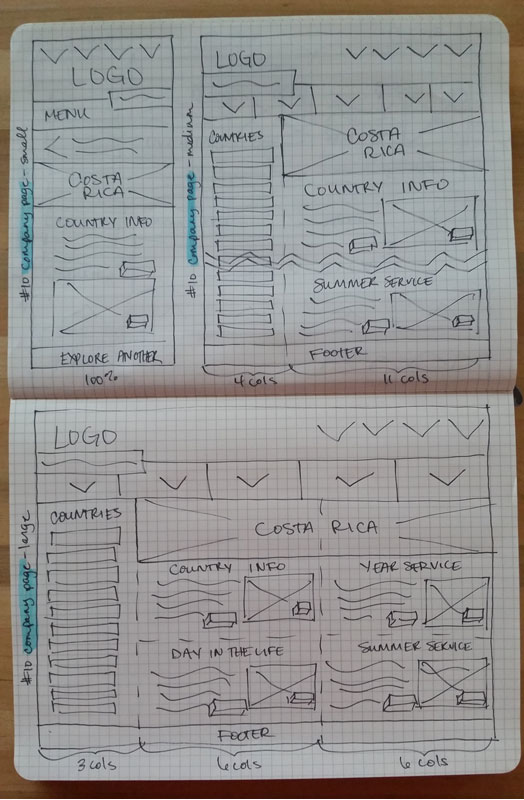 #10 company page - small
LOGO
MENU
COSTA
RICA
COUNTRY INFO
EXPLORE ANOTHER
100%
#10 company page - medium
LOGO
COUNTRIES
COSTA
RICA
COUNTRY INFO
SUMMER SERVICE
FOOTER
4 cols
11 cols
#10 company page - large
LOGO
COUNTRIES
COSTA RICA
COUNTRY INFO
YEAR SERVICE
DAY IN THE LIFE
SUMMER SERVICE
FOOTER
3 cols
6 cols
6 cols